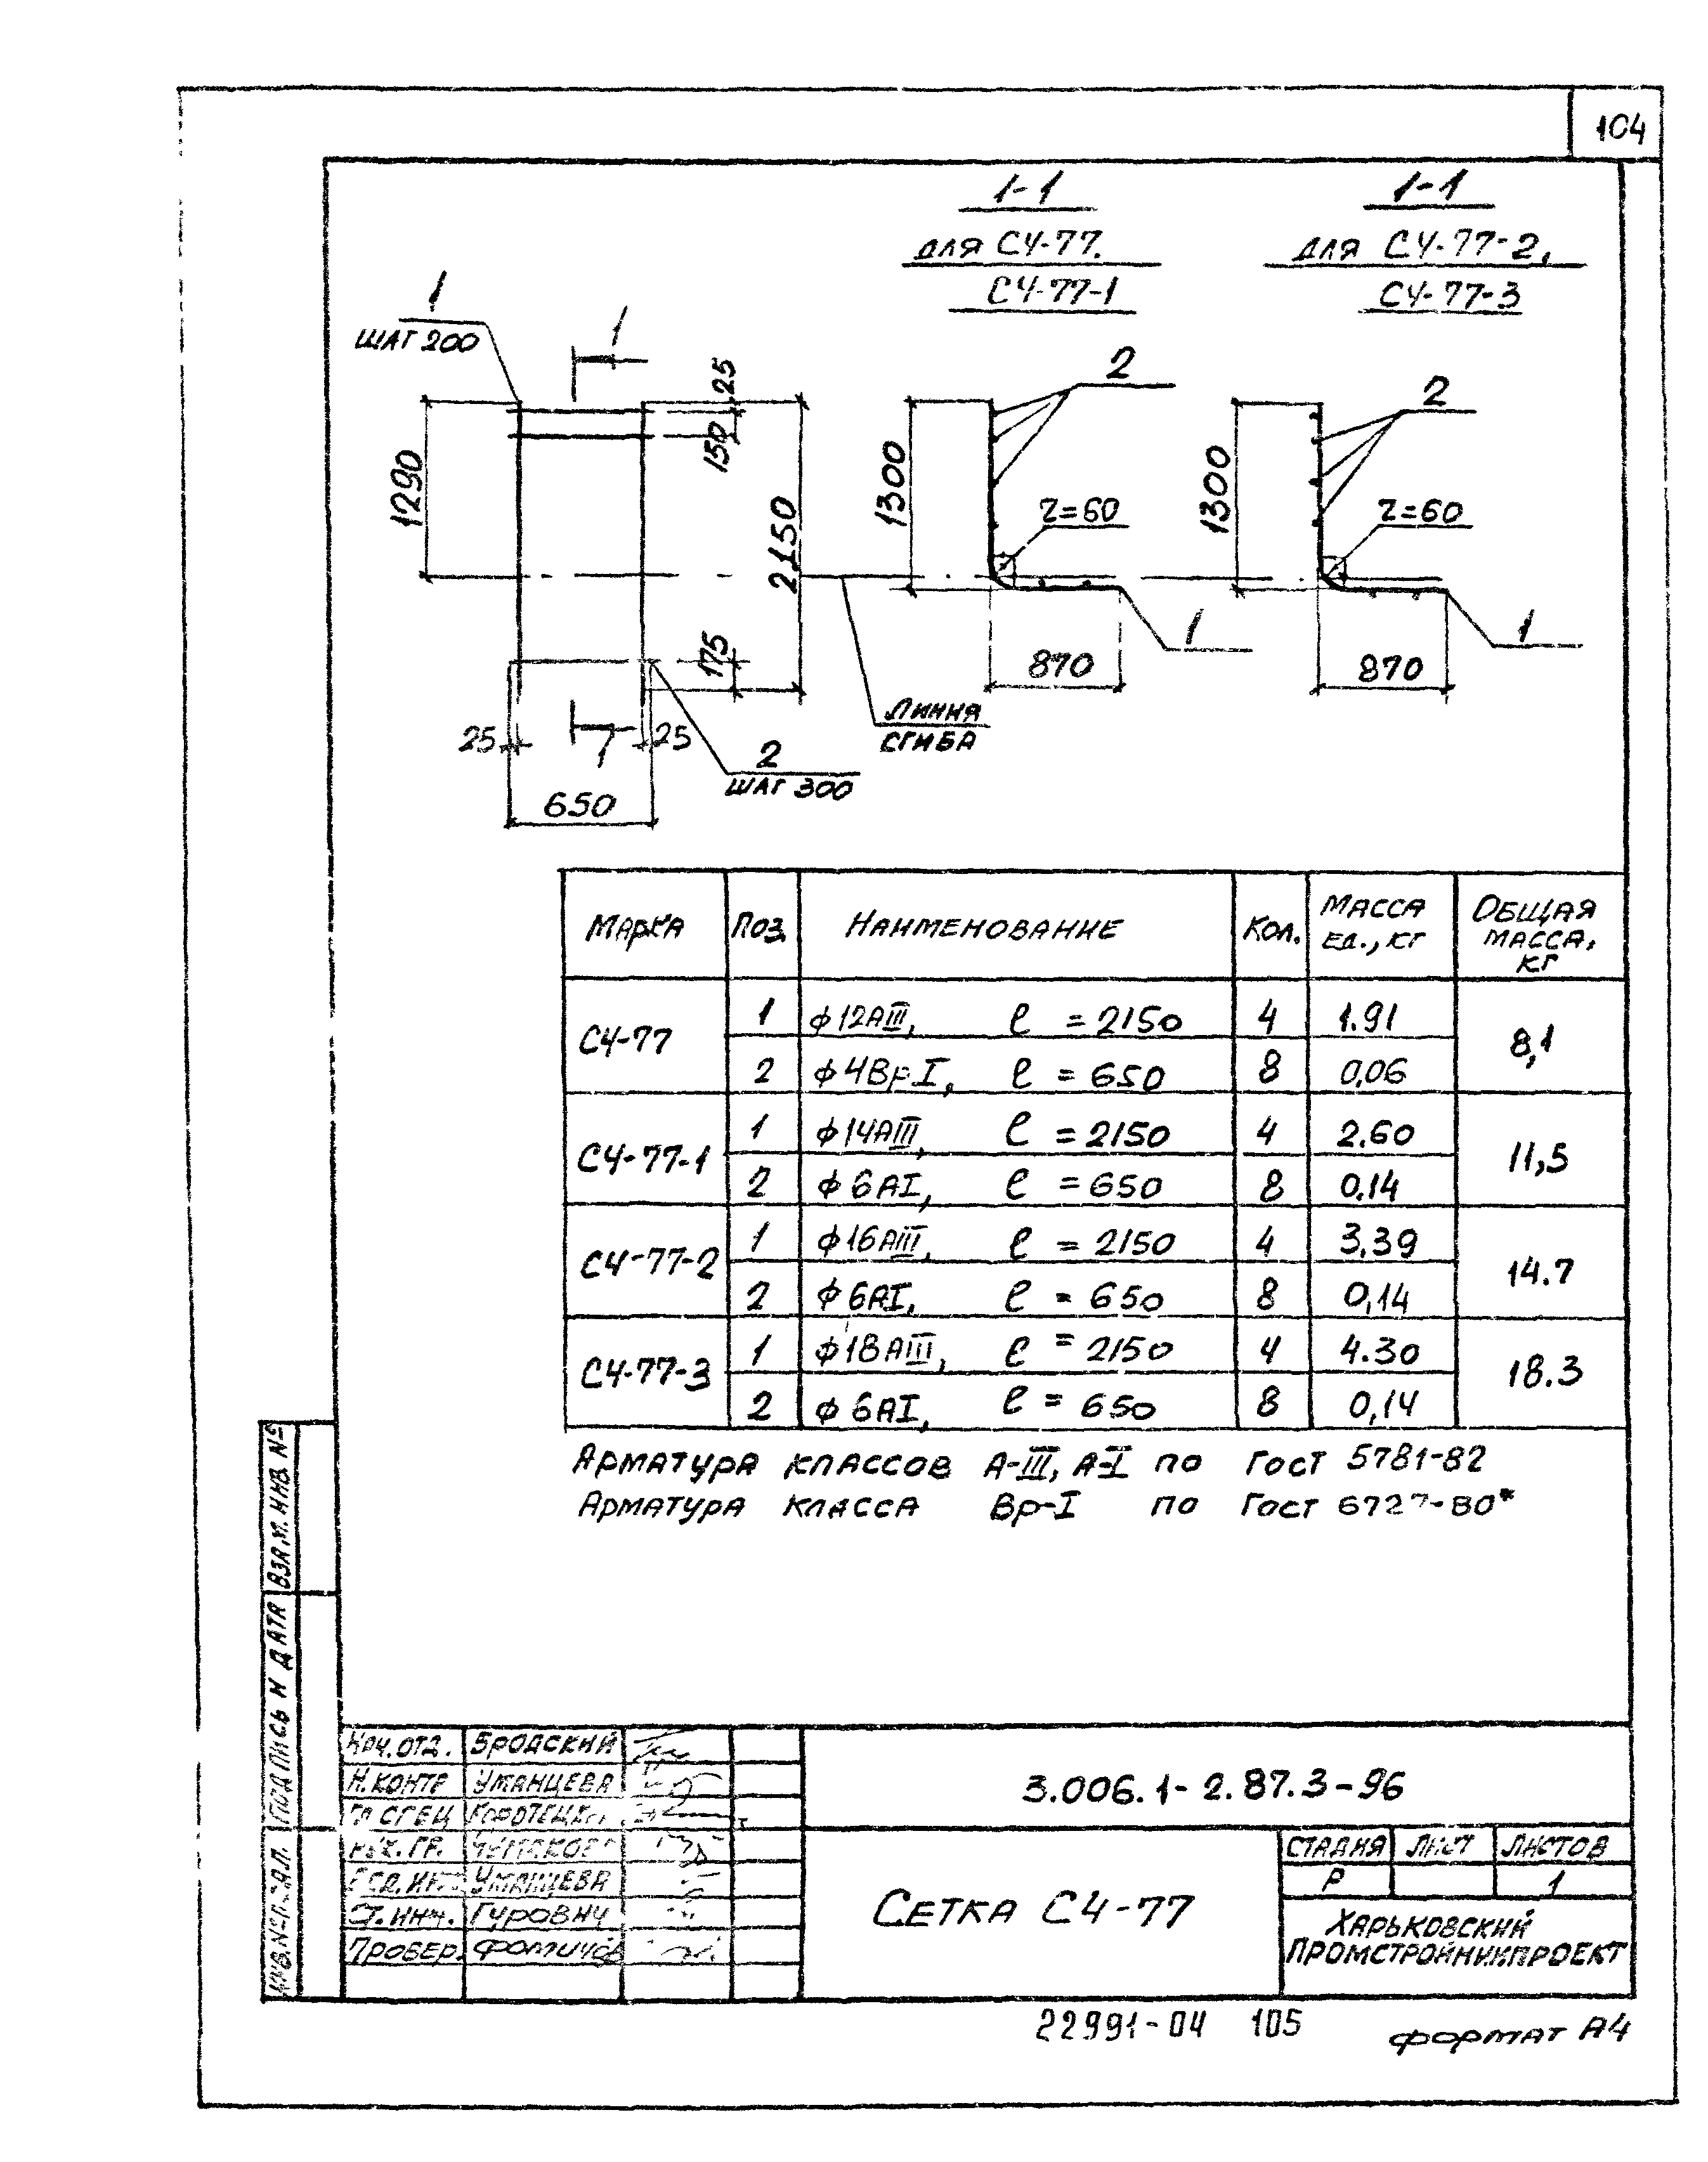 104
1-1
для С4-77.
С4-77-1
1-1
для С4-77-2,
С4-77-3
1
шаг 200
1
25
150
1290
2150
175
25
1
25
650
2
шаг 300
линия
сгиба
2
1300
r=60
870
1
2
1300
r=60
870
1
Марка Поз. Наименование Кол. Масса ед., кг Общая масса, кг
С4-77 1 ϕ12АIII, ℓ = 2150 4 1.91 8,1
2 ϕ4ВрI, ℓ = 650 8 0,06
С4-77-1 1 ϕ14АIII, ℓ = 2150 4 2.60 11,5
2 ϕ6АI, ℓ = 650 8 0.14
С4-77-2 1 ϕ16АIII, ℓ = 2150 4 3.39 14.7
2 ϕ6АI, ℓ = 650 8 0,14
С4-77-3 1 ϕ18АIII, ℓ = 2150 4 4.30 18.3
2 ϕ6АI, ℓ = 650 8 0,14
Арматура классов А-III, А-I по Гост 5781-82
Арматура класса Вр-I по Гост 6727-80*
Взам. инв. №
Подпись и дата
Инв. № подл.
Нач. отд. Бродский
Н. контр Уманцева
Гл спец
Рук. гр.
Вед. инж Уманцева
Ст. инж. Гурович
Провер. Фомичёв
3.006.1-2.87.3-96
Сетка С4-77
Стадия Лист Листов
Р 1
Харьковский
Промстройниипроект
22991-04 105
формат А4